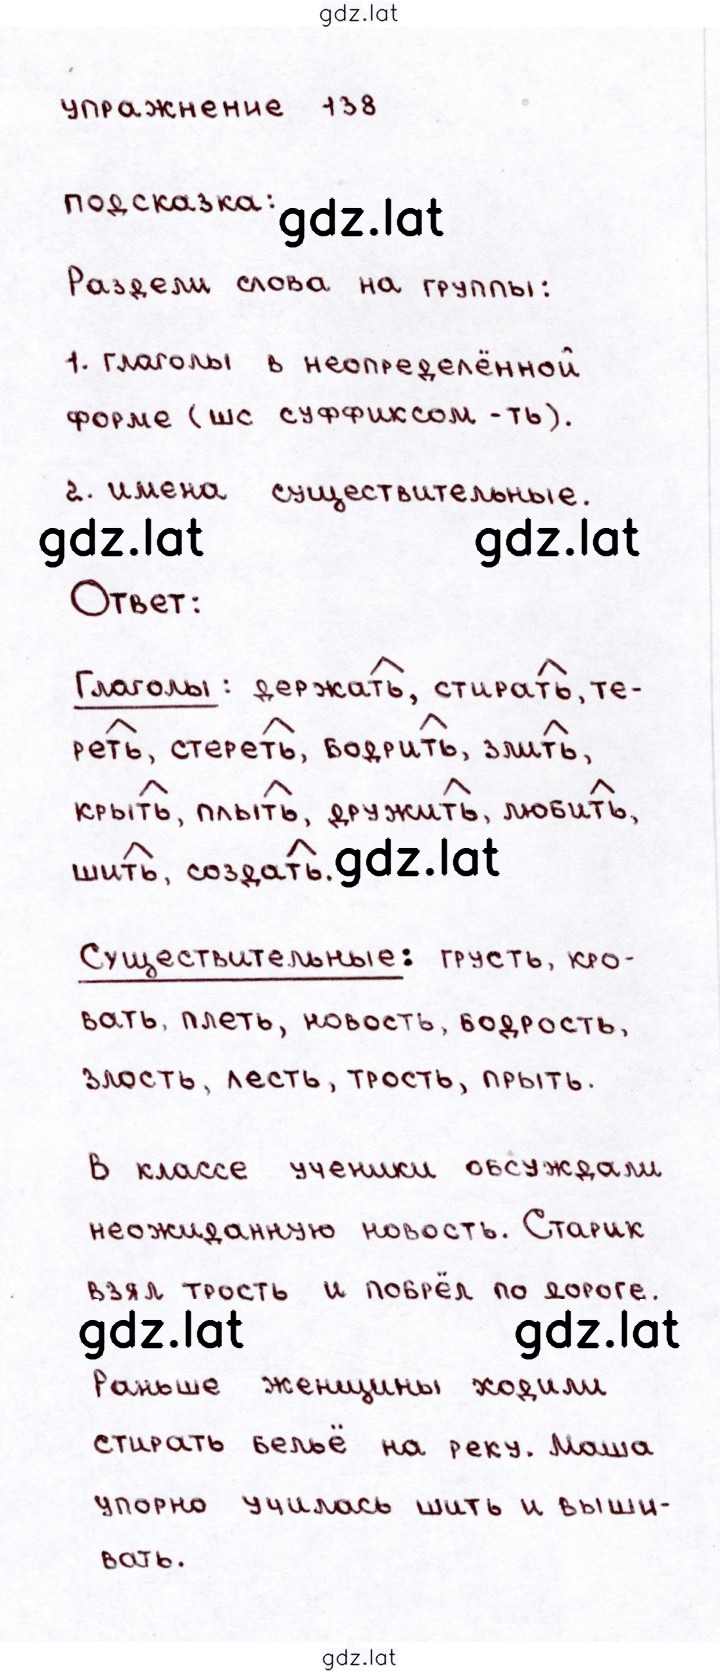 gdz.lat
упражнение 138
подсказка:
gdz.lat
Раздели слова на группы:
1. глаголы в неопределённой
форме (шс суффиксом -ть).
2. имена существительные.
gdz.lat gdz.lat
Ответ:
Глаголы: держать, стирать, те-
реть, стереть, бодрить, злить,
крыть, плыть, дружить, любить,
шить, создать.
gdz.lat
Существительные: грусть, кро-
вать, плеть, новость, бодрость,
злость, лесть, трость, прыть.
В классе ученики обсуждали
неожиданную новость. Старик
взял трость и побрёл по дороге.
gdz.lat gdz.lat
Раньше женщины ходили
стирать бельё на реку. Маша
упорно училась шить и выши-
вать.
gdz.lat